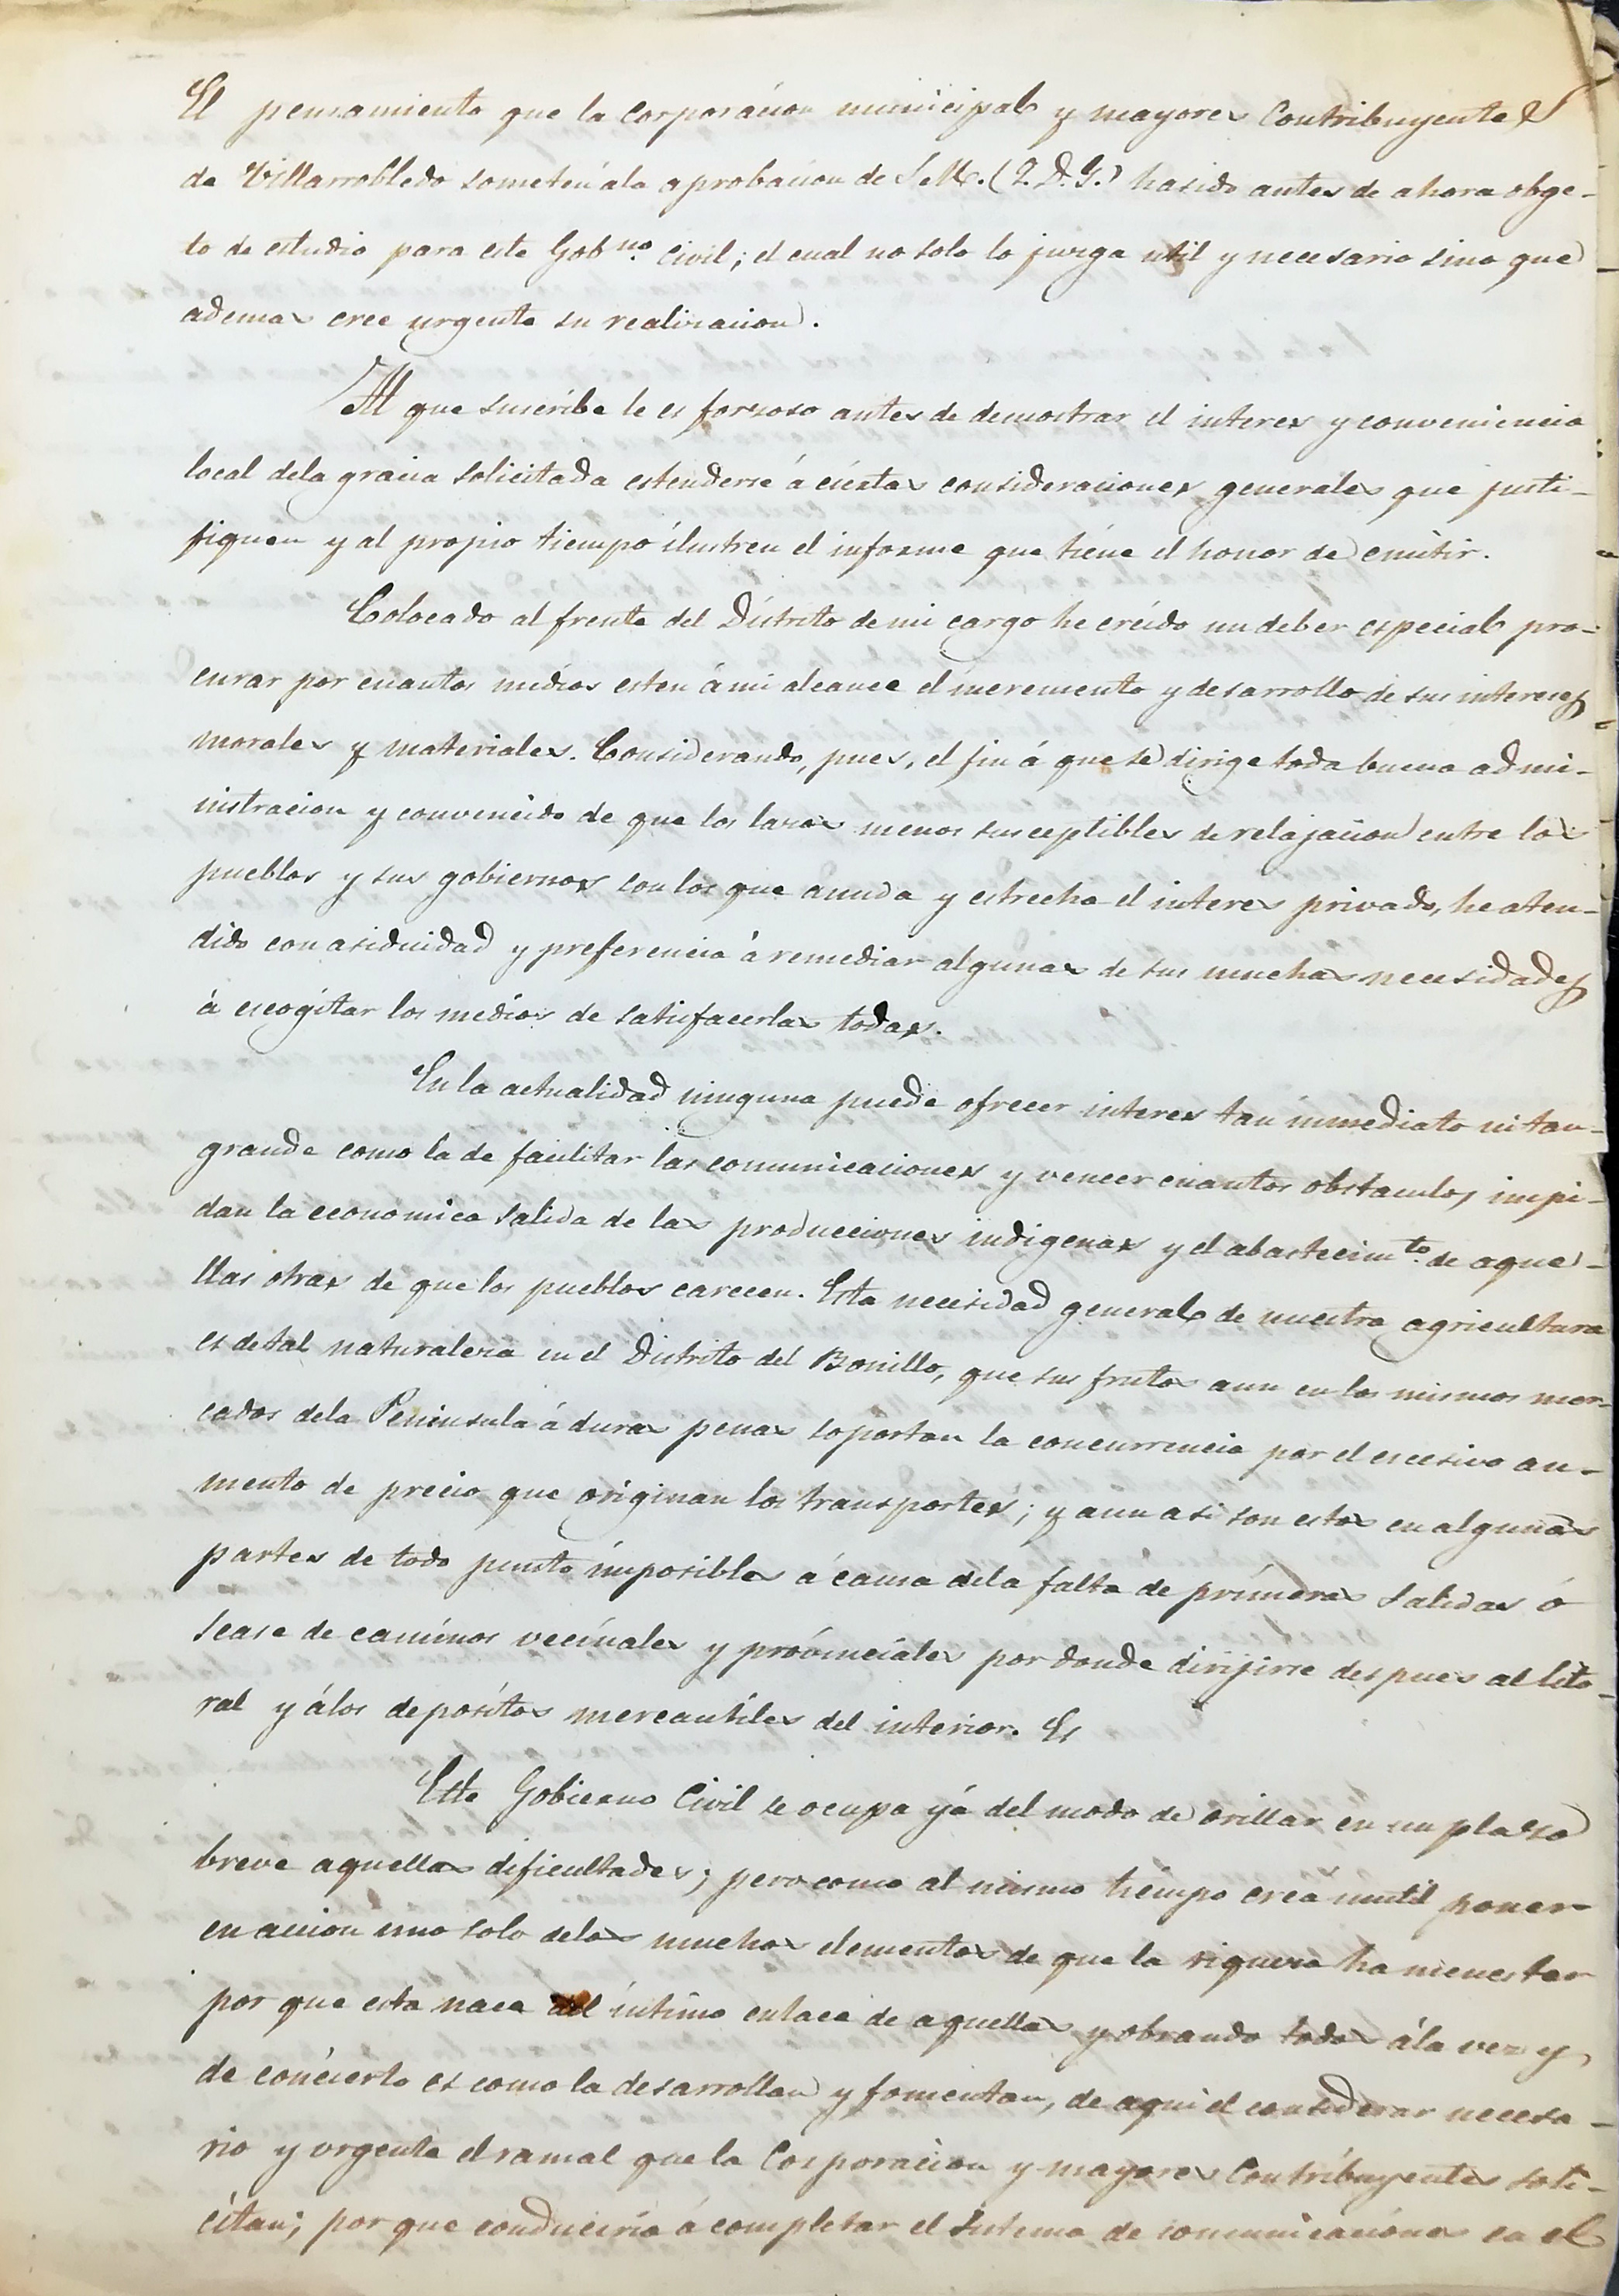 El pensamiento que la corporacion municipal y mayores Contribuyentes
de Villarrobledo someten á la aprobacion de S.M. (Q.D.G.) ha sido antes de ahora obge-
to de estudio para este Gobno. Civil; el cual no solo lo juzga util y necesario sino que
ademas cree urgente su realizacion.
Al que suscribe le es forzoso antes de demostrar el interes y conveniencia
local dela gracia solicitada estenderse á ciertas consideraciones generales que justi-
fiquen y al propio tiempo ilustren el informe que tiene el honor de emitir.
Colocado al frente del Distrito de mi cargo he creido un deber especial pro-
curar por cuantos medios esten á mi alcance el incremento y desarrollo de sus intereses
morales y materiales. Considerando, pues, el fin á que se dirige toda buena admi-
nistracion y convencido de que los lazos menos susceptibles de relajacion entre los
pueblos y sus gobiernos son los que anuda y estrecha el interes privado, he aten-
dido con asiduidad y preferencia á remediar algunas de sus muchas necesidades
á escogitar los medios de satisfacerlas todas.
En la actualidad ninguna puede ofrecer interes tan inmediato ni tan-
grande como la de facilitar las comunicaciones y vencer cuantos obstaculos impi-
dan la economica salida de las producciones indigenas y el abastecimto. de aque-
llas otras de que los pueblos carecen. Esta necesidad general de nuestra agricultura
es de tal naturaleza en el Distrito del Bonillo, que sus frutos aun en los mismos mer-
cados dela Peninsula á duras penas soportan la concurrencia por el escesivo au-
mento de precio que originan los transportes; y aun asi son estos en algunas
partes de todo punto imposibles á causa dela falta de primeras salidas ó
sease de caminos vecinales y provinciales por donde dirijirse despues al lito-
ral y álos depositos mercantiles del interior. Es
Este Gobierno Civil se ocupa yá del modo de orillar en un plazo
breve aquellas dificultades; pero como al mismo tiempo crea inutil poner
en accion uno solo delos muchos elementos de que la riqueza ha menester
por que esta nace del intimo enlace de aquellos y obrando todos ála vez y
de concierto es como la desarrollan y fomentan, de aqui el considerar necesa-
rio y urgente el ramal que la Corporacion y mayores Contribuyentes soli-
citan; por que conduciria á completar el sistema de comunicaciones en el